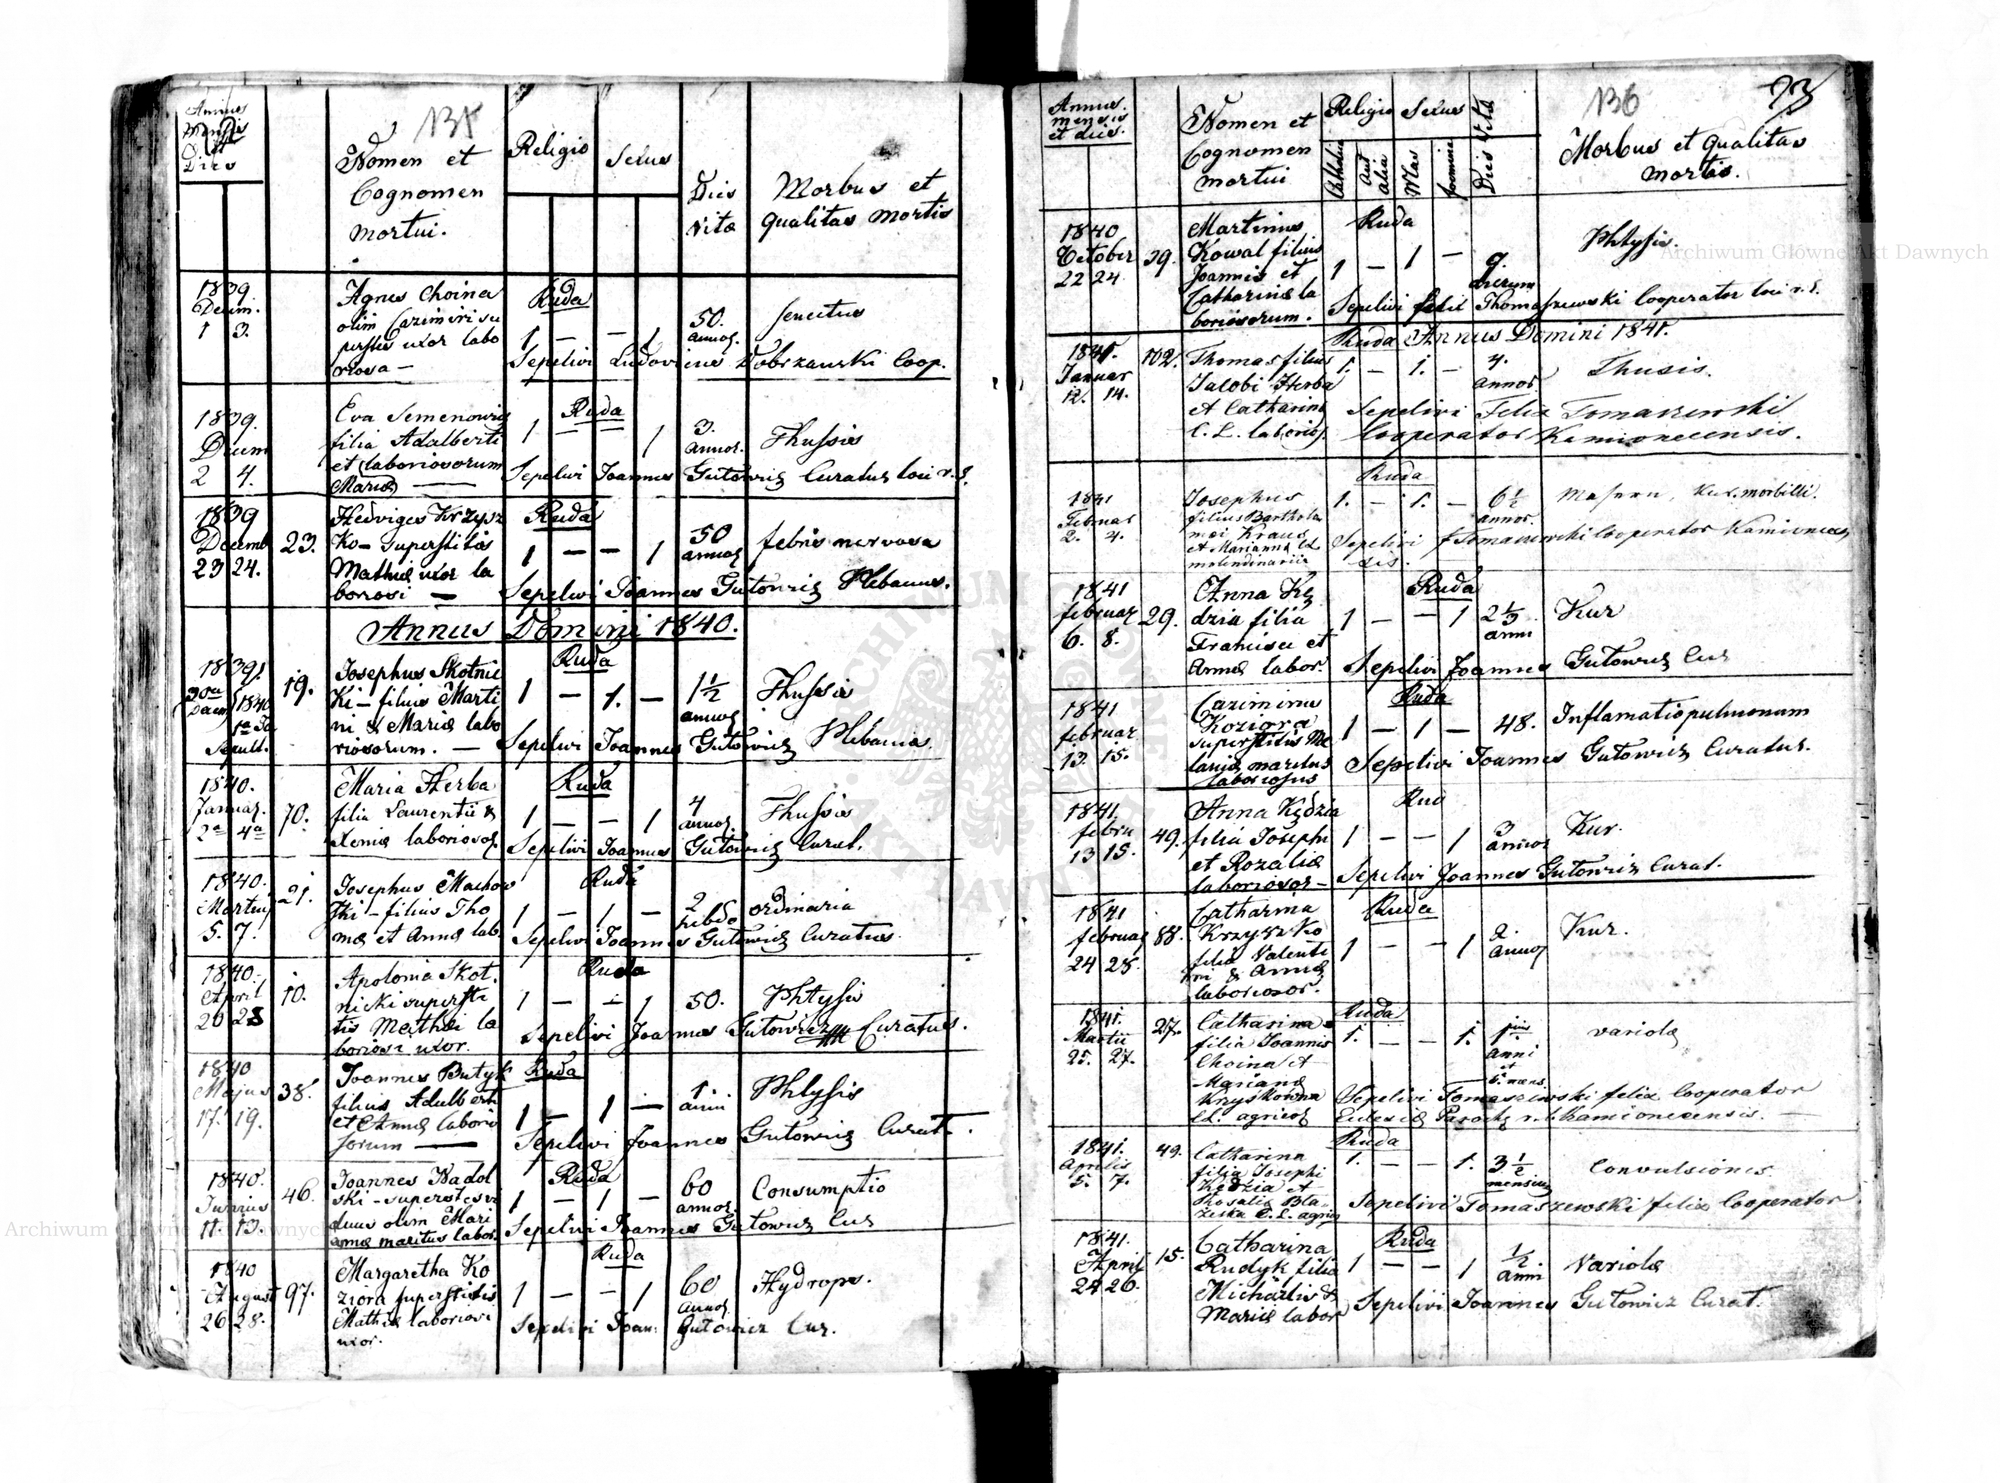 135
Annus
Mensis
et
Dies
Nomen et
Cognomen
mortui.
Religio
Sexus
Dies
vitæ
Morbus et
qualitas mortis
1839.
Decem.
1 3.
Agnes Choina
olim Cazimiri su
perstes uxor labo
riosa —
Ruda
1 — — 1
50.
annoꝝ.
Senectus
Sepelivi Ludovicus Dobrzanski Coop.
1839.
Decem
2 4.
Eva Semenowicz
filia Adalberti
et laboriosorum
Mariæ —
Ruda
1 — 1
3.
annor.
Thussis
Sepelivi Joannes Gutowicz Curatus loci r. l.
1839
Decemb
23 24.
23.
Hedviges Krzysz
Ko — superstitis
Mathiæ uxor la
boriosi —
Ruda
1 — — 1
50
annoꝝ
febris nervosa
Sepelivi Joannes Gutowicz Plebanus.
Annus Domini 1840.
1839.
30a
Decem 1840
1a Ja
Sepult.
19.
Josephus Skotnic
Ki — filius Marti
ni & Mariæ labo
riosorum. —
Ruda
1 — 1. —
1 1/2
annoꝝ
Thussis
Sepelivi Joannes Gutowicz Plebanus.
1840.
Januar.
2a 4a
70.
Maria Herba
filia Laurentii &
Xeniæ laboriosoꝝ
Ruda
1 — — 1
4
annoꝝ.
Thussis
Sepelivi Joannes Gutowicz Curat.
1840.
Martius
5. 7.
21.
Josephus Machow
ski — filius Tho
mæ et Annæ lab.
Ruda
1 — 1 —
2
hebdo
ordinaria
Sepelivi Joannes Gutowicz Curatus.
1840.
April
20 23
10.
Apolonia Skot.
nicki supersti
tis Mathei la
boriosi uxor.
Ruda
1 — — 1
50.
Phtysis
Sepelivi Joannes Gutowicz Curatus.
1840
Majus
17. 19.
38.
Joannes Butyk
filius Adalberti
et Annæ laborio
sorum —
Ruda
1 — 1 —
1.
anni
Phtysis
Sepelivi Joannes Gutowicz Curat.
1840.
Junius
11 13.
46.
Joannes Nadol
ski — superstes vi
duus olim Mari
annæ maritus labor.
Ruda
1 — 1 —
60
annoꝝ.
Consumptio
Sepelivi Joannes Gutowicz Cur
1840
August
26 28.
97.
Margaretha Ko
ziora superstitis
Mathiæ laboriosi
uxor.
Ruda
1 — — 1
60
annoꝝ
Hydrops.
Sepelivi Joan: Gutowicz Cur.
136
93
Annus.
mensis
et dies.
Nomen et
Cognomen
mortui
Religio
Catholica
Aut
alia
Sexus
Mas
foemina
Dies Vitæ
Morbus et qualitas
mortis.
1840
October
22 24.
39.
Martinus
Kowal filius
Joannis et
Catharinæ la
boriosorum.
Ruda
1 — 1 —
9.
dierum
Phtysis.
Sepelivi felix Thomaszewski Cooperator loci r. l.
Ruda Annus Domini 1841.
1841.
Januar
12. 14.
102.
Thomas filius
Jacobi Herba
et Catharinæ
C. L. laborioꝝ
1. — 1. —
4.
annor.
Thusis.
Sepelivi Felix Tomaszewski
Cooperator Kamionecensis.
1841
Februar
2. 4.
Josephus
filius Bartholo
mei Kraus
et Marianna CL
molendinarii
Ruda
1. — 1. —
6 1/2
annor.
Masern, Kur. morbilli.
Sepelivi f Tomaszewski Cooperator Kamionecen
sis.
1841
februar
6. 8.
29.
Anna Kę
dzia filia
Francisci et
Annæ labor.
Ruda
1 — — 1
2 1/3
anni
Kur
Sepelivi Joannes Gutowicz Cur
1841
februar
13. 15.
Cazimirus
Koziorra
superstitis Me
laniæ maritus
laboriosus
Ruda
1 — 1 —
48.
Inflamatio pulmonum
Sepelivi Joannes Gutowicz Curatus.
1841.
febru
13 15.
49.
Anna Kędzia
filia Josephi
et Rozaliæ
laboriosor —
Rud
1 — — 1
3
annor
Kur.
Sepelivi Joannes Gutowicz Curat.
1841
februaꝝ
24 25.
88.
Catharina
Krzyszko
filia Valenti
ni & Annæ
laboriosor.
Ruda
1 — — 1
2.
annoꝝ
Kur.
1841.
Martii
25. 27.
27.
Catharina
filia Joannis
Choina et
Marianæ
Kryskówna
CL. agricoꝝ
Ruda
1. — — 1.
1
anni
et
6. mens.
variolæ
Sepelivi Tomaszewski felix Cooperator
Ecclesiæ Paroch. r. l. Kamionecensis. —
1841.
Aprilis
5. 7.
49.
Catharina
filia Josephi
Kędzia et
Rosaliæ Bla
zeska C. L. agricoꝝ
Ruda
1. — — 1.
3 1/2
mensium
Convulsiones
Sepelivi Tomaszewski felix Cooperator
1841.
April
24 26.
15.
Catharina
Rudyk filia
Michaëlis &
Mariæ labor
Ruda
1 — — 1
1/2
anni
Variolæ
Sepelivi Joannes Gutowicz Curat.
Archiwum Główne Akt Dawnych
Archiwum Główne Akt Dawnych